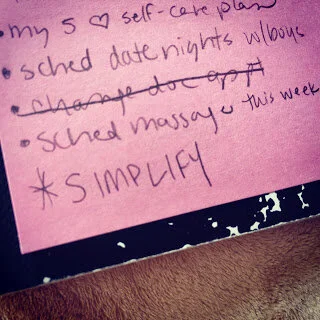 • my 5 ♡ self-care plan
• sched date nights w/boys
• change doc appt
• sched massage this week
* SIMPLIFY